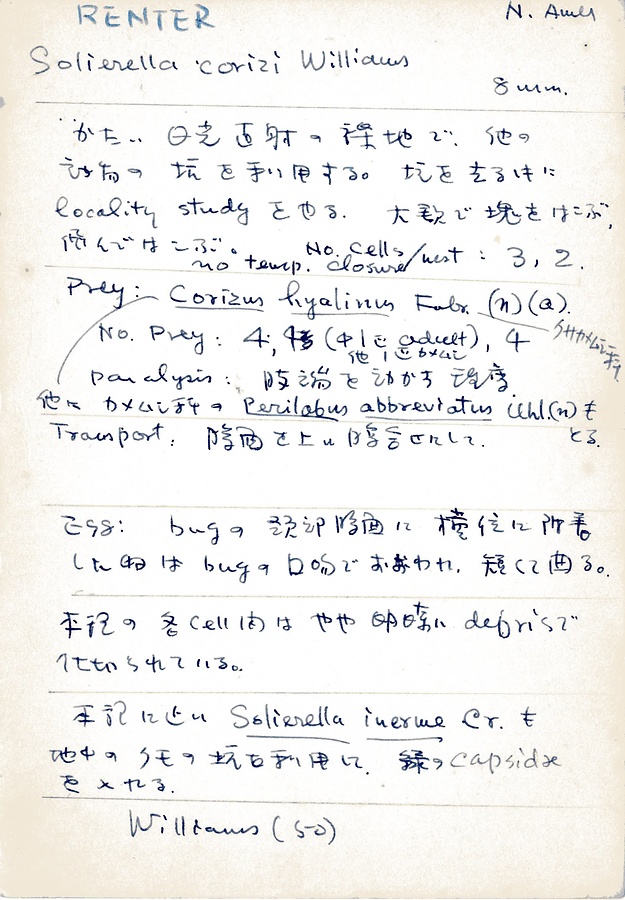 RENTER
N. Amer
Solierella corizi Williams
8 mm.
かたい 日光直射の裸地で、他の
動物の 坑を利用する。 坑を去る時に
locality study をやる. 大歩で塊をはこぶ,
はこぶ。 No. cells/nest : 3, 2.
no temp. closure
Prey: Corizus hyalinus Fabr. (n)(a).
No. Prey: 4, (中1匹 adult), 4
他1匹カメムシ
paralysis: 肢端を動かす程度
他に カメムシ科の Perilabus abbreviatus Uhl.(n)も
とる.
Transport: 腹面を上に して.
Egg: bugの 頸部腹面に 横位に附着
した卵は bugの口吻でおおわれ, 短くて曲る。
本種の 各cell間は やや に debrisで
仕切られている。
本記に近い Solierella inerme Cr. も
地中の クモの坑を利用して, 緑のcapsidae
を 入れる.
Williams (50)